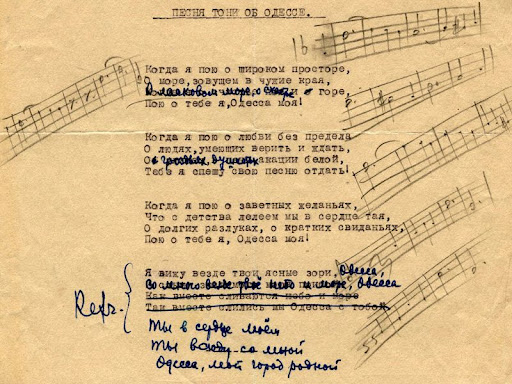 ПЕСНЯ ТОНИ ОБ ОДЕССЕ.
Когда я пою о широком просторе,
О море, зовущем в чужие края,
ласковом море, о и горе,
Пою о тебе я, Одесса моя!
Когда я пою о любви без предела
О людях, умеющих верить и ждать,
акации белой,
Тебе я спешу свою песню отдать!
Когда я пою о заветных желаньях,
Что с детства лелеем мы в сердце тая,
О долгих разлуках, о кратких свиданьях,
Пою о тебе я, Одесса моя!
Refr.
Я вижу везде твои ясные зори, Одесса,
Со мною везде твоё небо и море, Одесса
вместе сливаются небо и море
Так вместе слились мы Одесса с тобой
Ты в сердце моём
Ты всюду со мной
Одесса, мой город родной